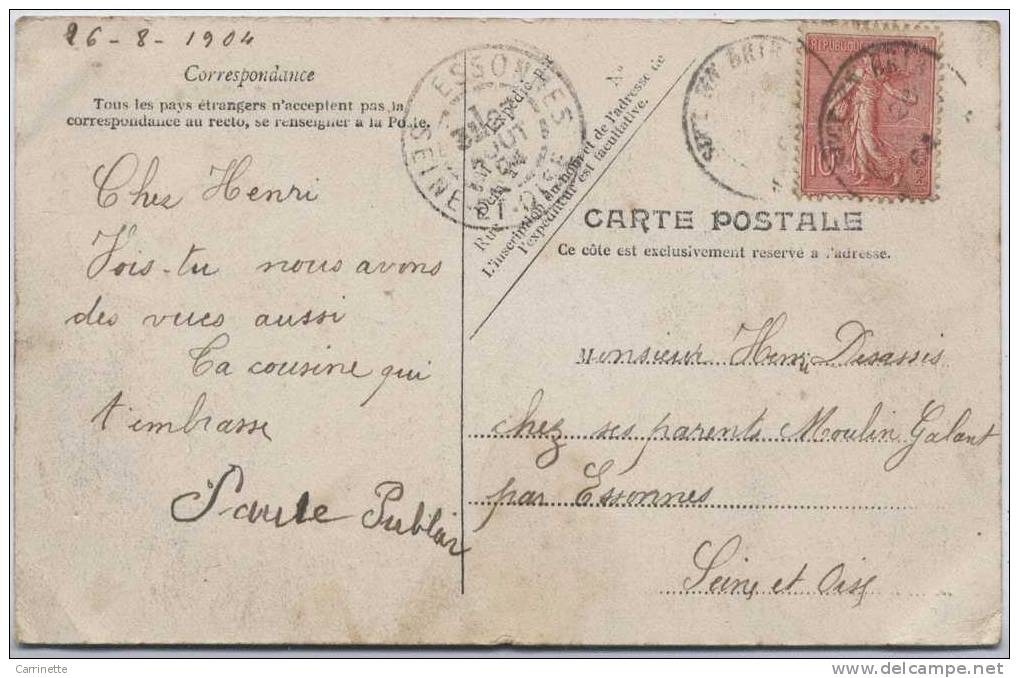 26 - 8 - 1904
Correspondance
Tous les pays étrangers n'acceptent pas la
correspondance au recto, se renseigner à la Poste.
Cher Henri
Vois-tu nous avons
des vues aussi
Ta cousine qui
t'embrasse
Paule
ESSONNES
SEINE-ET-OISE
AOUT
04
Nº
Rue
L'inscription du nom et de l'adresse de
l'expéditeur est facultative.
REPUBLIQUE
10
CARTE POSTALE
Ce côté est exclusivement reservé a l'adresse.
Monsieur Henri Desassis
chez ses parents Moulin Galant
par Essonnes
Seine et Oise
Carrinette
delcampe.net